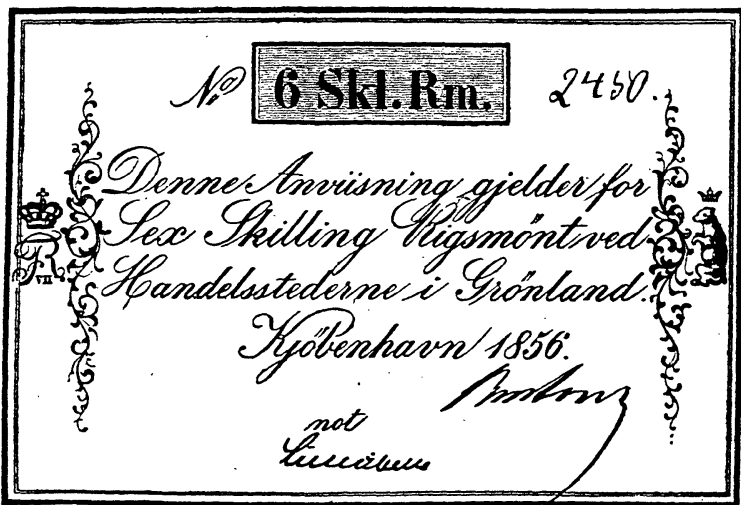 No 6 Skl. Rm. 2450.
Denne Anviisning gjelder for
Sex Skilling Rigsmönt ved
Handelsstederne i Grönland.
VII
Kjöbenhavn 1856.
not